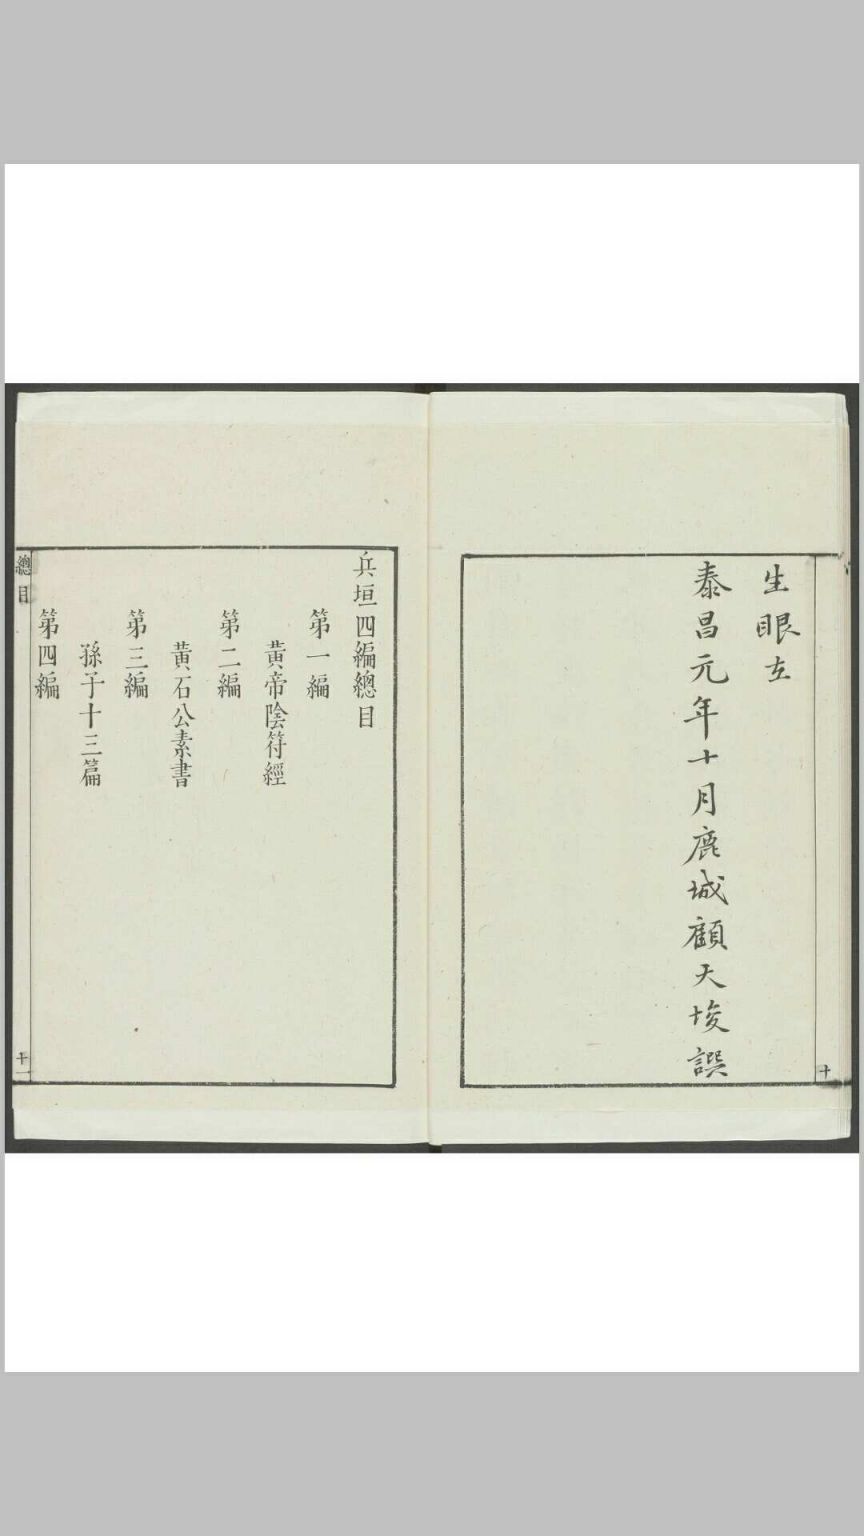 生眼左
泰昌元年十月鹿城顧天埈譔
十
兵垣四編總目
第一編
黃帝陰符經
第二編
黃石公素書
第三編
孫子十三篇
第四編
總目
十一